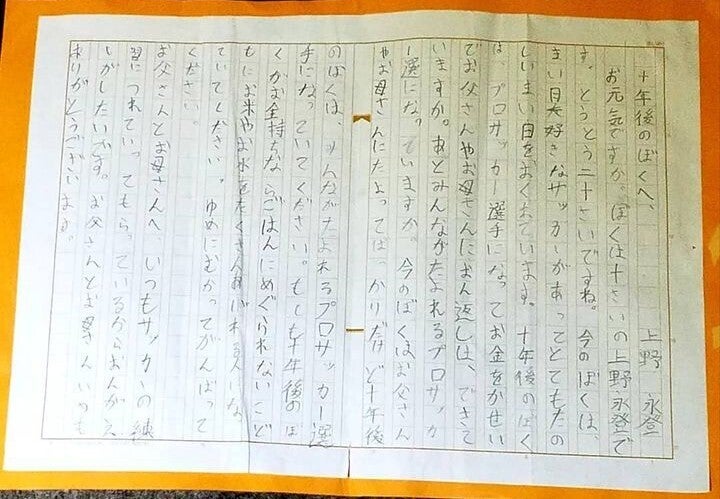 十年後のぼくへ、
上野 永登
お元気ですか。ぼくは十さいの上野永登で
す。とうとう二十さいですね。今のぼくは、
まい日大好きなサッカーがあってとてもたの
しいまい日をおくれています。十年後のぼく
は、プロサッカー選手になってお金をかせい
でお父さんやお母さんにおん返しは、できて
いますか。あとみんながたよれるプロサッカ
ー選になっていますか。今のぼくはお父さん
やお母さんにたよってばっかりだけど十年後
のぼくは、みんながたよれるプロサッカー選
手になっていてください。もしも十年後のぼ
くがお金持ちならごはんにめぐられないこど
もにお米やお水をたくさんあげれる人になっ
ていてください。ゆめにむかってがんばって
ください。
お父さんとお母さんへ、いつもサッカーの練
習につれていってもらっているからおんがえ
しがしたいです。お父さんとお母さんいつも
ありがとうございます。